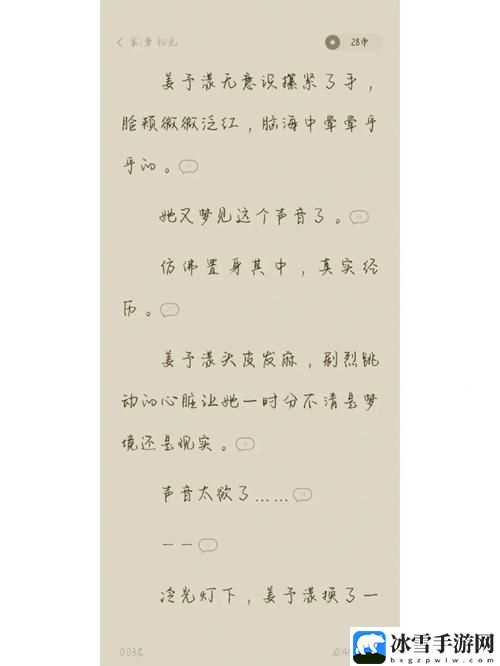 第1章 初见
28币
姜予漾无意识攥紧了手，
脸颊微微泛红，脑海中晕晕乎
乎的。
她又梦见这个声音了。
仿佛置身其中，真实经
历。
姜予漾头皮发麻，剧烈跳
动的心脏让她一时分不清是梦
境还是现实。
声音太欲了……
——
冷光灯下，姜予漾换了一
0.03%
冰雪手游网
bxgzpwlw.com